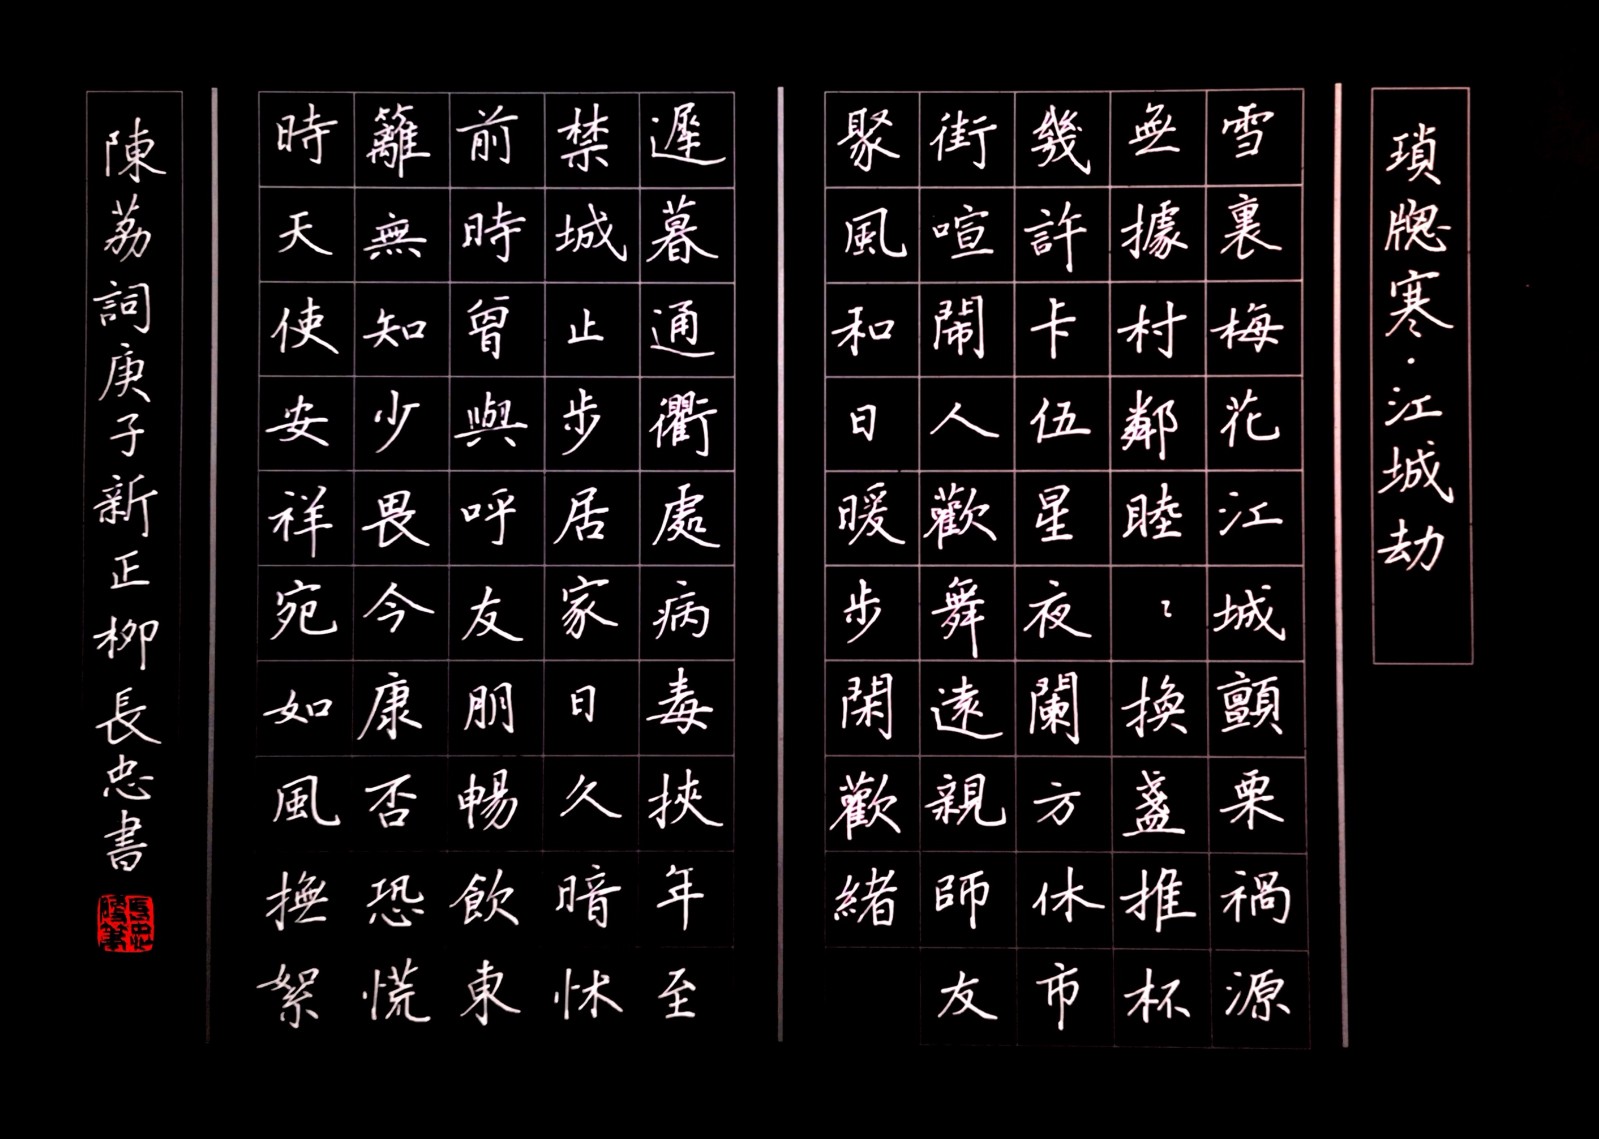 瑣牕寒·江城劫
雪裏梅花江城顫栗禍源
無據村鄰睦〻換盞推杯
幾許卡伍星夜闌方休市
街喧鬧人歡舞遠親師友
聚風和日暖步閑歡緒
遲暮通衢處病毒挾年至
禁城止步居家日久暗怵
前時曾與呼友朋暢飲東
籬無知少畏今康否恐慌
時天使安祥宛如風撫絮
陳荔詞庚子新正柳長忠書